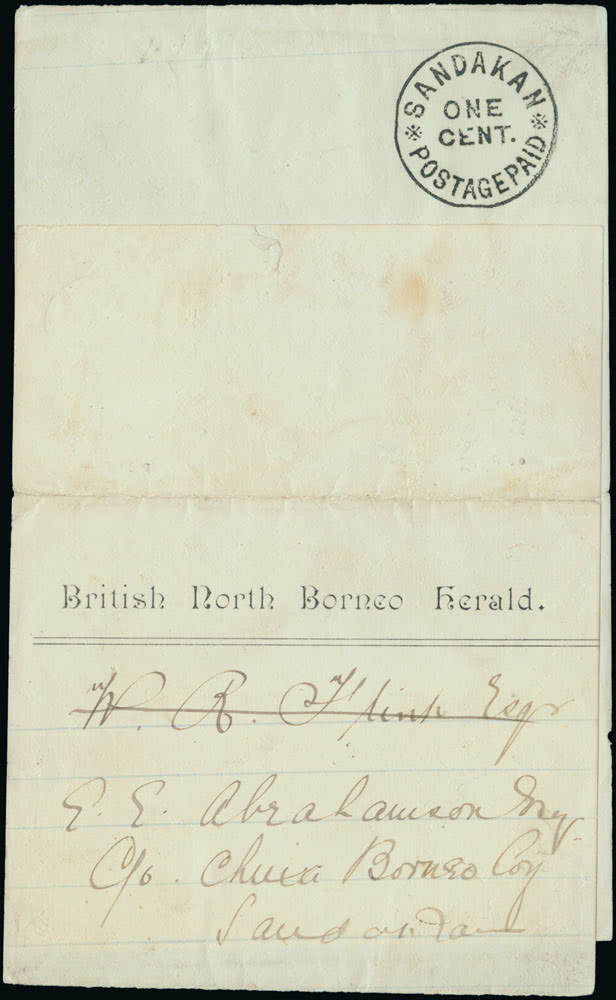 SANDAKAN
ONE
CENT.
POSTAGE PAID
British North Borneo Herald.
W. R. Flint Esqr
E. E. Abrahamson Esq
C/o. China Borneo Coy
Sandakan